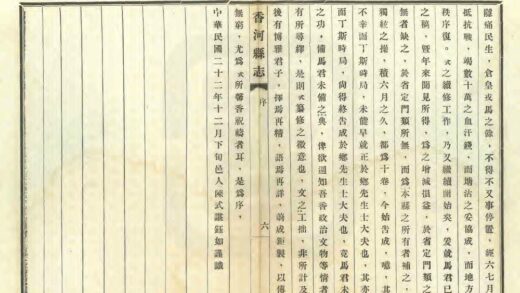 隱痛民生，倉皇戎馬之餘，不得不又事停置，經六七月
抵抗戰，竭數十萬之血汗錢，而塘沽之妥協成，而地方
秩序復。式之續修工作，乃又繼續開始矣，爰就馬君已
之稿，暨年來聞見所得，爲之增減損益，於省定門類之
無者缺之，於省定門類所無，而爲本縣之所有者補之，
獨絃之操，積六月之久，都爲十卷，今始告成，噫，其
不幸而丁斯時局，未能早就正於鄉先生士大夫也，其亦
而丁斯時局，尚得終告成於鄉先生士大夫也，竟馬君未
之功，備馬君未備之典，俾欲週知吾香政治文物等情者
有所尋繹，是則式纂修之微意也，文之工拙，非所計及
後有博雅君子，擇焉再精，語焉再詳，蔚成鉅製，以傳
香河縣志
序
六
無窮，尤爲式所馨香祝禱者耳，是爲序，
中華民國二十二年十二月下旬邑人陳式諶鈺如謹識